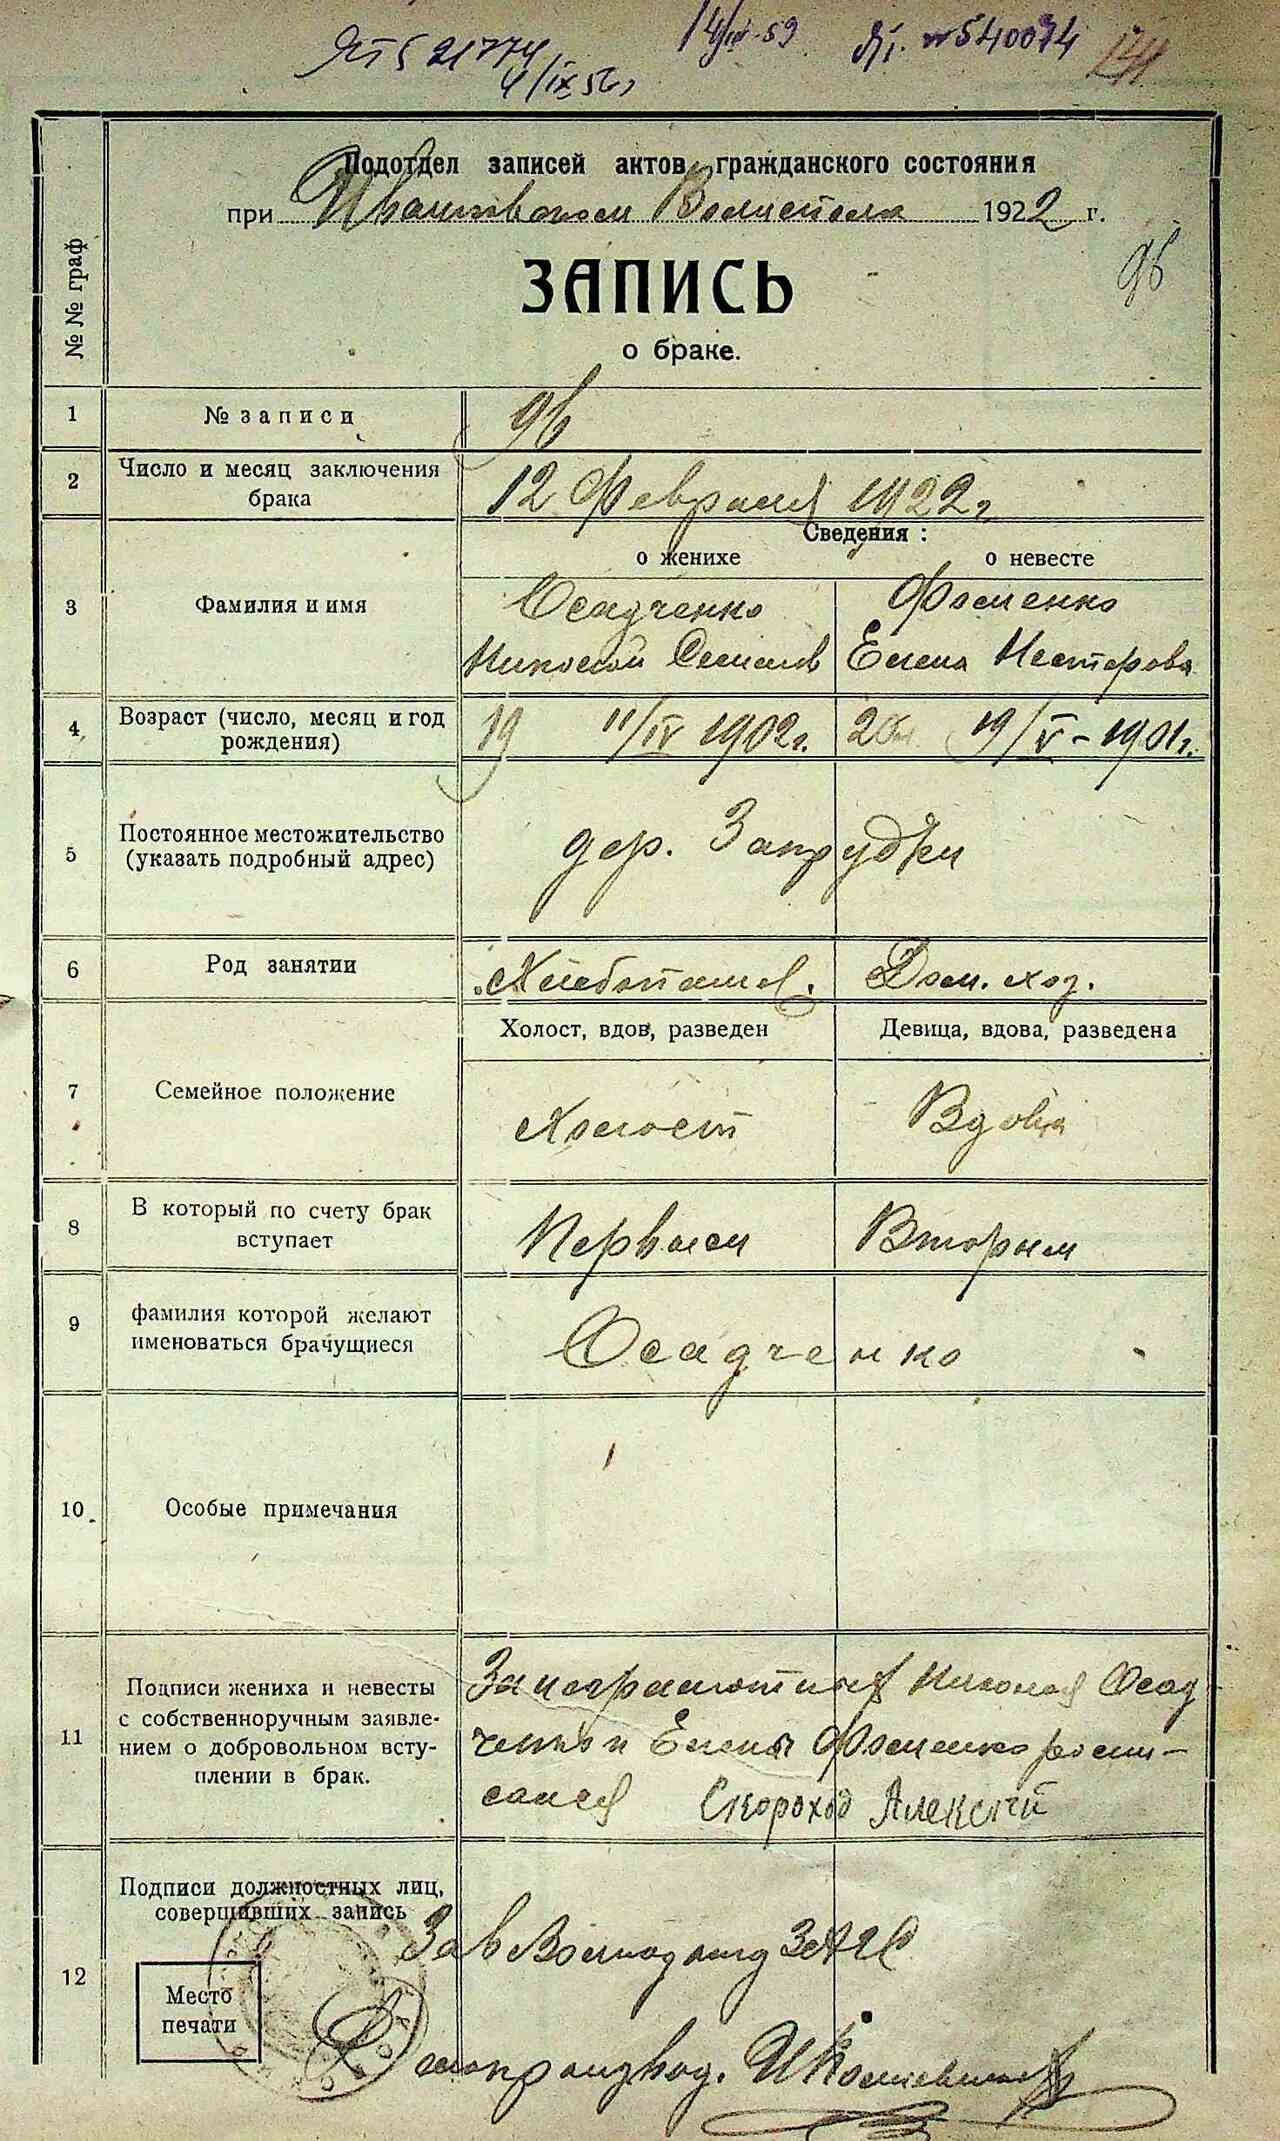 14/IV-59
№ 540074
ЯТ 5 21774
4/IX 56г
Подотдел записей актов гражданского состояния
при Ивантовском Волисполк 1922 г.
96
№№ граф
ЗАПИСЬ
о браке.
1 № записи 96
2 Число и месяц заключения
брака
12 Февраля 1922г
Сведения:
о женихе о невесте
3 Фамилия и имя
Осадченко Фоменко
Николай Семенов Елена Нестерова
4 Возраст (число, месяц и год
рождения)
19 11/IV 1902г. 20 19/V-1901г.
5 Постоянное местожительство
(указать подробный адрес)
дер. Запрудки
6 Род занятии Хлебопашец. Дом. хоз.
Холост, вдов, разведен Девица, вдова, разведена
7 Семейное положение
Холост Вдова
8 В который по счету брак
вступает
Первым Вторым
9 фамилия которой желают
именоваться брачущиеся
Осадченко
10 Особые примечания
11 Подписи жениха и невесты
с собственноручным заявле-
нием о добровольном всту-
плении в брак.
За неграмотных Николая Осад
ченко и Елены Фоменко распи-
сался Скороход Алексей
12 Подписи должностных лиц,
совершивших запись
Зав Волподотд ЗАГС
Место
печати
Делопроизвод.